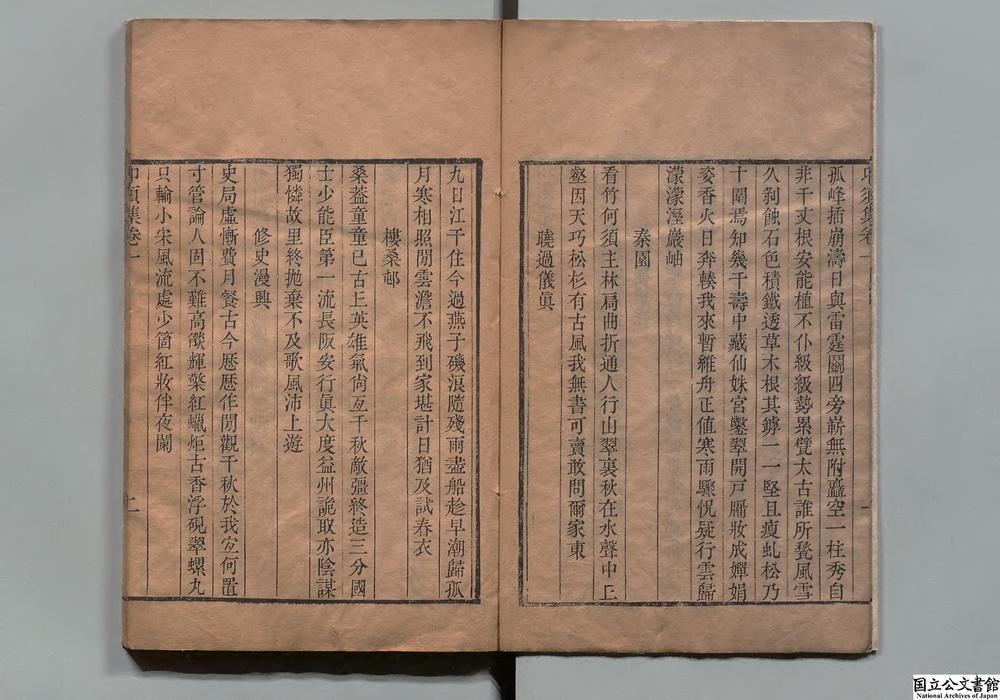 孤峰插崩濤日與雷霆鬬四旁嶄無附矗空一柱秀自
非千丈根安能植不仆級級勢累甓太古誰所甃風雪
久剝蝕石色積鐵透草木根其罅一一堅且瘦虬松乃
十圍焉知幾千壽中藏仙姝宮鑿翠開戸牖妝成嬋娟
姿香火日奔輳我來暫維舟正值寒雨驟怳疑行雲歸
濛濛溼巖岫
秦園
看竹何須主林扃曲折通人行山翠裏秋在水聲中丘
壑因天巧松杉有古風我無書可賣敢問爾家東
曉過儀眞
九日江干住今過燕子磯浪隨殘雨盡船趁早潮歸孤
月寒相照閒雲澹不飛到家堪計日猶及試春衣
樓桑邨
桑蓋童童已古丘英雄氣尙亙千秋敵彊終造三分國
士少能臣第一流長阪安行眞大度益州詭取亦陰謀
獨憐故里終拋棄不及歌風沛上遊
修史漫興
史局虛慚費月餐古今歷歷作閒觀千秋於我宐何置
寸管論人固不難高燄輝檠紅蠟炬古香浮硯翠螺丸
只輸小宋風流處少箇紅妝伴夜闌
集卷一
二
国立公文書館
National Archives of Japan